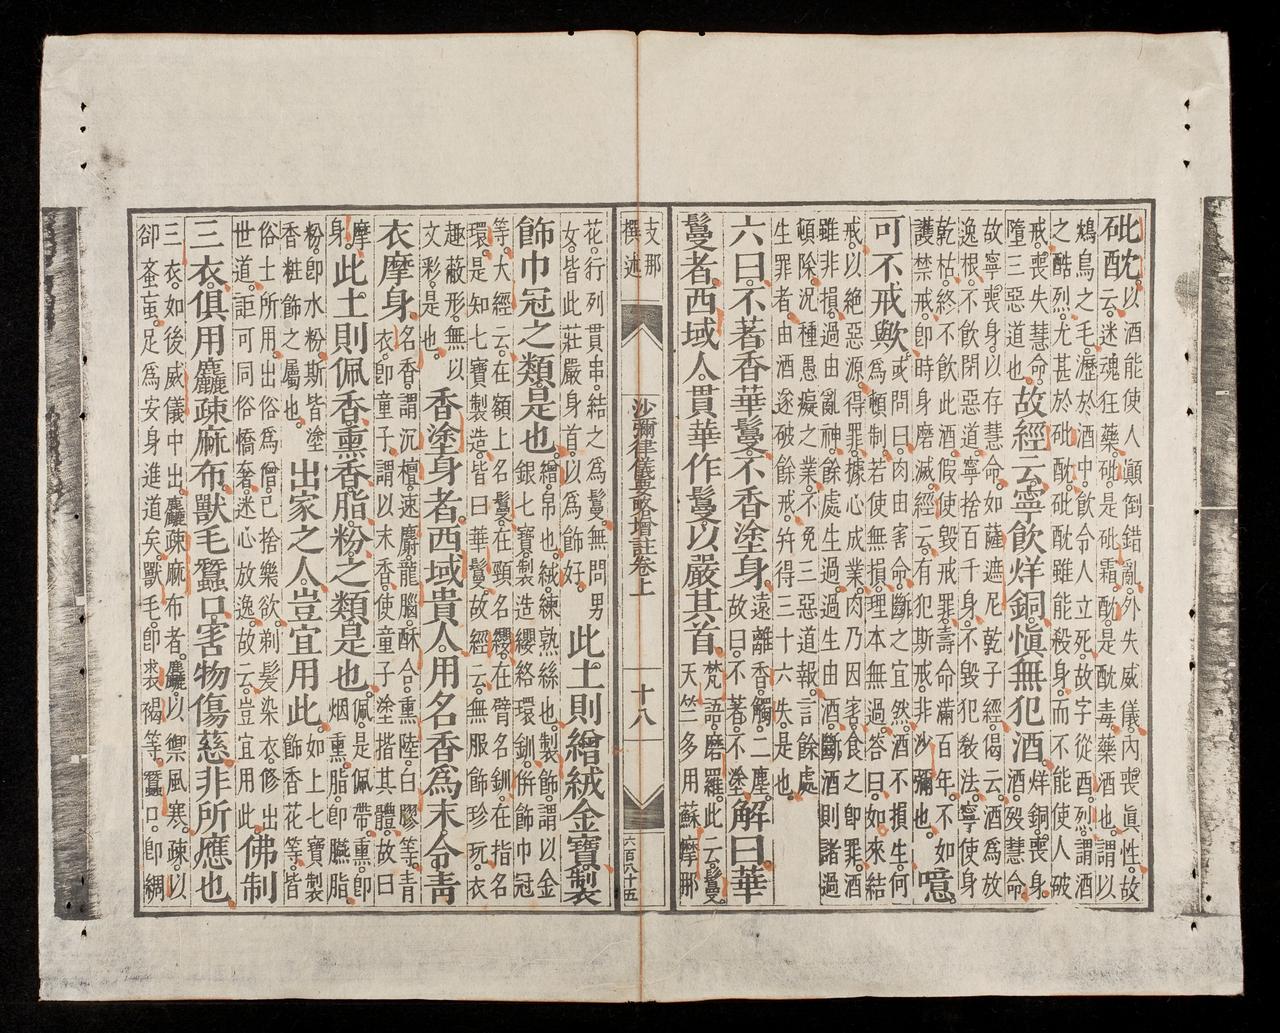 砒酖。以酒能使人顛倒錯亂。外失威儀。內喪眞性。故
云。迷魂狂藥。砒是砒霜。酖是酖毒。藥酒也。謂以
鴆鳥之毛。瀝於酒中。飲令人立死。故字從酉。烈。謂酒
之酷烈。尤甚於砒酖。砒酖雖能殺身。而不能使人破
戒。喪失慧命。
墮三惡道也。故經云。寧飲烊銅。愼無犯酒。烊銅。喪身。
酒。殁慧命。
故寧喪身。以存慧命。如薩遮尼乾子經偈云。酒爲放
逸根。不飲閉惡道。寧捨百千身。不毀犯敎法。寧使身
乾枯。終不飲此酒。假使毀戒罪。壽命滿百年。不如
護禁戒。卽時身磨滅。經云。有犯斯戒。非沙彌也。噫。
可不戒歟。或問曰。肉由害命。斷之宜然。酒不損生。何
爲頓制。若使無損。理本無過。答曰。如來結
戒。以絕惡源。得罪據心成業。肉乃因害。食之卽罪。酒
雖非損。過由亂神。餘處生過。過生由酒。斷酒則諸過
頓除。況種愚癡之業。不免三惡道報。言餘處
生罪者。由酒遂破餘戒。幷得三十六失。是也。
六曰。不著香華鬘。不香塗身。遠離香觸二塵。
故曰。不著。不塗。解曰。華
鬘者。西域人。貫華作鬘。以嚴其首。梵語。磨羅。此云。鬘。
天竺多用蘇摩那
支那
撰述
沙彌律儀要略增註卷上
十八
六百八十五
花。行列貫串。結之爲鬘。無問男
女。皆此莊嚴身首。以爲飾好。此土則繒絨金寶製
飾巾冠之類是也。繒。帛也。絨。練熟絲也。製飾。謂以金
銀七寶。製造纓絡環釧。併飾巾冠
等。大經云。在額上名鬘。在頸名纓。在臂名釧。在指名
環。是知七寶製造。皆曰華鬘。故經云。無服飾珍玩。衣
趣蔽形。無以
文彩。是也。香塗身者。西域貴人。用名香爲末。令靑
衣摩身。名香。謂沉檀。速麝。龍腦。酥合。熏陸。白膠等。靑
衣。卽童子。謂以末香。使童子塗揩其體。故曰
摩
身。此土則佩香熏香脂粉之類是也。佩。佩帶。熏。卽
烟熏。脂。卽臙脂
粉。卽水粉。斯皆塗
香粧飾之屬也。出家之人。豈宜用此。如上七寶製
飾香花等。皆
俗士所用。出俗爲僧。已捨樂欲。剃髮染衣。修出
世道。詎可同俗憍奢。迷心放逸。故云。豈宜用此。佛制
三衣。俱用麤疎麻布。獸毛蠶口。害物傷慈。非所應也。
三衣。如後威儀中出。麤疎麻布者。麤。以禦風寒。疎。以
卻蚤䖟。足爲安身進道矣。獸毛。卽裘褐等。蠶口。卽綢